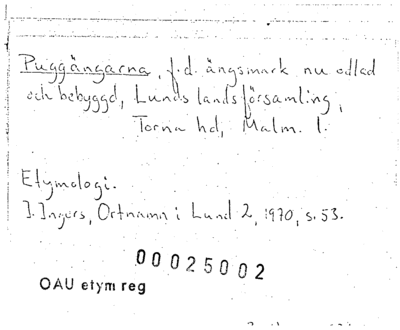 Puggängarna, f.d. ängsmark nu odlad
och bebyggd, Lunds landsförsamling,
Torna hd, Malm. l.
Etymologi.
I. Ingers, Ortnamn i Lund 2, 1970, s. 53.
00025002
OAU etym reg